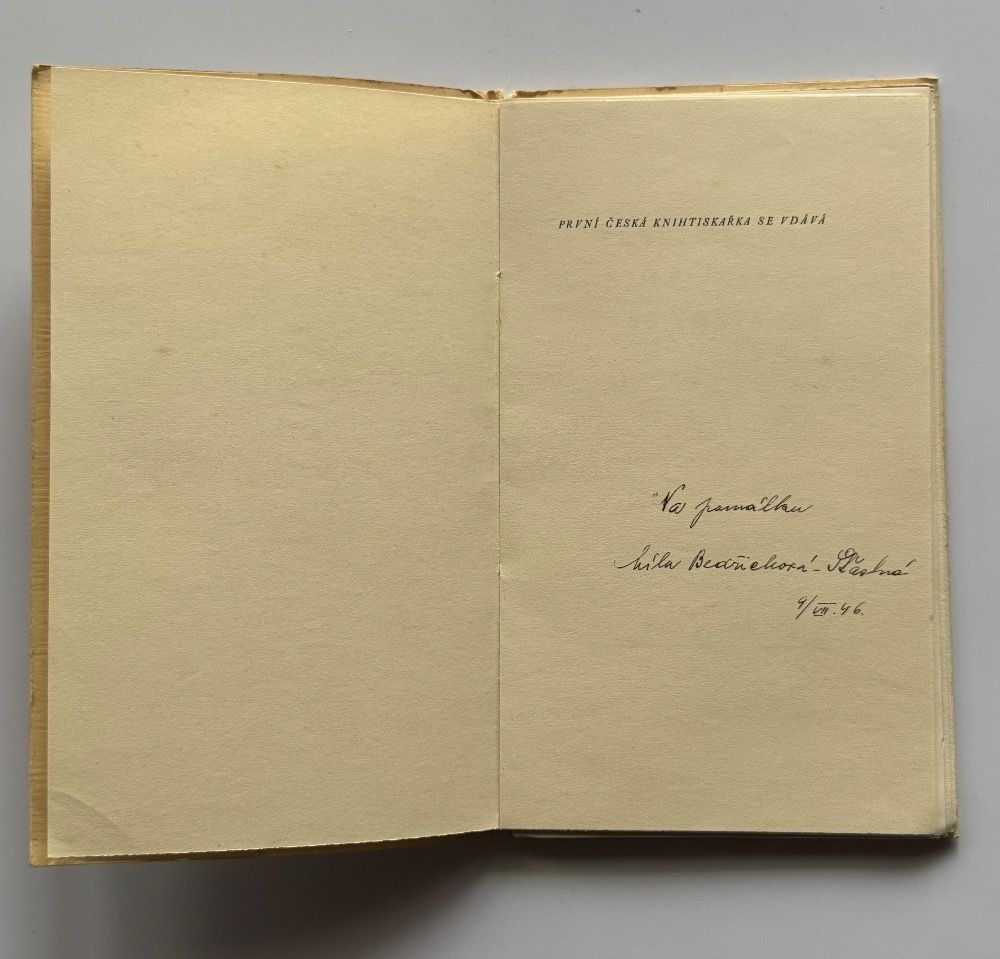 PRVNÍ ČESKÁ KNIHTISKAŘKA SE VDÁVÁ
Na památku
Míla Bedřichová - Šťastná
9/VII. 46.